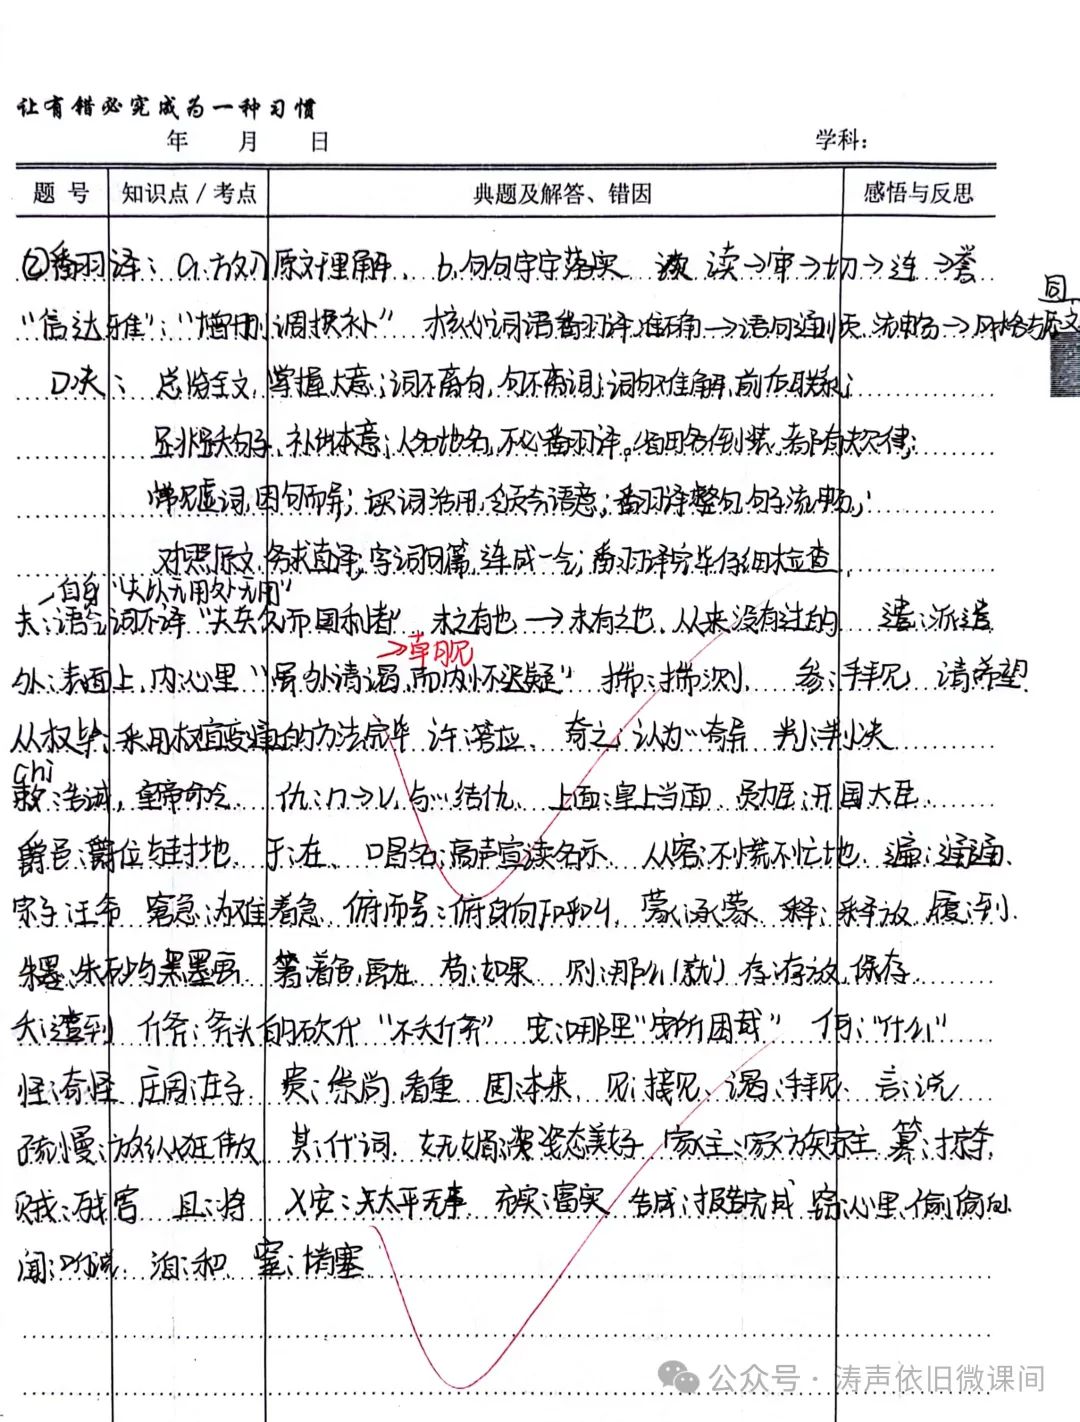 让有错必究成为一种习惯
年 月 日 学科:
题号 知识点/考点 典题及解答、错因 感悟与反思
②翻译: a.放入原文理解、b.句句字字落实 读→审→切→连→誊
同
"信达雅":"增删调换补" 核心词语翻译准确→语句通顺 流畅→风格与原文
口诀: 总览全文,掌握大意;词不离句,句不离词;词句难解,前后联系;
补出本意;人名地名,不必翻译。省略倒装,都有规律;
常见虚词,因句而异;实词活用,领会语意;翻译整句,句子流畅;
对照原文,务求直译;字词句篇,连成一气;翻译完毕仔细检查
自身 "夫以无用处无用"
夫:语气词不译 "夫失众而国利者" 未之有也→未有之也,从来没有过的 遣:派遣
外:表面上,内:心里 "虽外请谒,而内怀迟疑" 揣:揣测 参:拜见 请希望
从权毕:采用权宜变通的方法完毕 许:答应、 奇之:认为…奇异 判:判决
chi
敕:告诫,皇帝命令 仇:n→v.与…结仇 上面:皇上当面 勋臣:开国大臣
爵邑:爵位与封地 于:在、 唱名:高声宣读名字 从容:不慌不忙地 遍:通通、
窘急:为难着急 俯而号:俯身向下呼叫、 蒙:承蒙 释:释放 履:到
朱墨:朱砂与黑墨 着:着色 苟:如果 则:那么(就) 存:存放,保存
夭:遭到 斤斧:斧头的砍伐 "不夭斤斧" 安:哪里"安所困哉" 何:"什么"
怪:奇怪 庄周:庄子 贵:崇尚,看重 固:本来、 见:接见、谒:拜见、言:说
疏慢:放纵狂傲 其:代词、 妩媚:姿态美好 家主:家族宗主
贼:残害 且:将 乂安:太平无事 充实:富实 告成:报告完成 窃:心里,偷偷向
闻:听说 洎:和 窒:堵塞
公众号·涛声依旧微课间